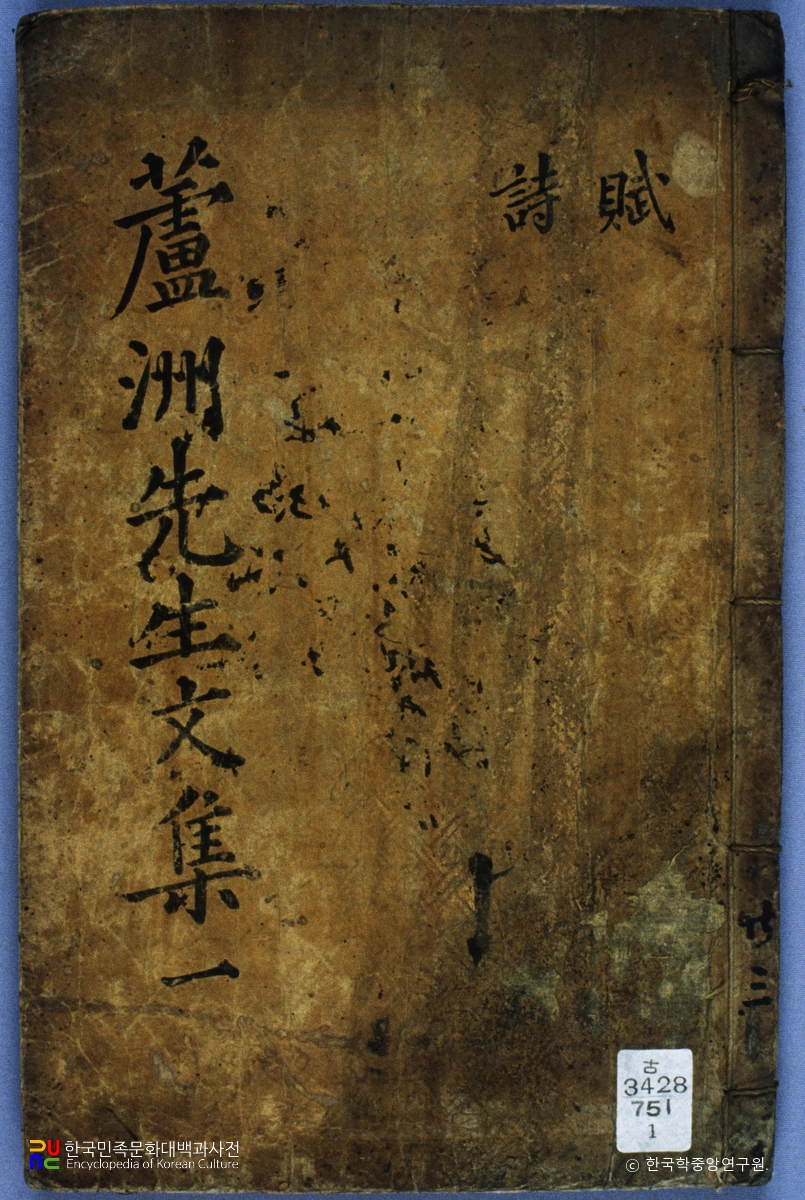 賦
詩
蘆洲先生文集 一
共三
古
3428
751
1
한국민족문화대백과사전
Encyclopedia of Korean Culture
© 한국학중앙연구원.